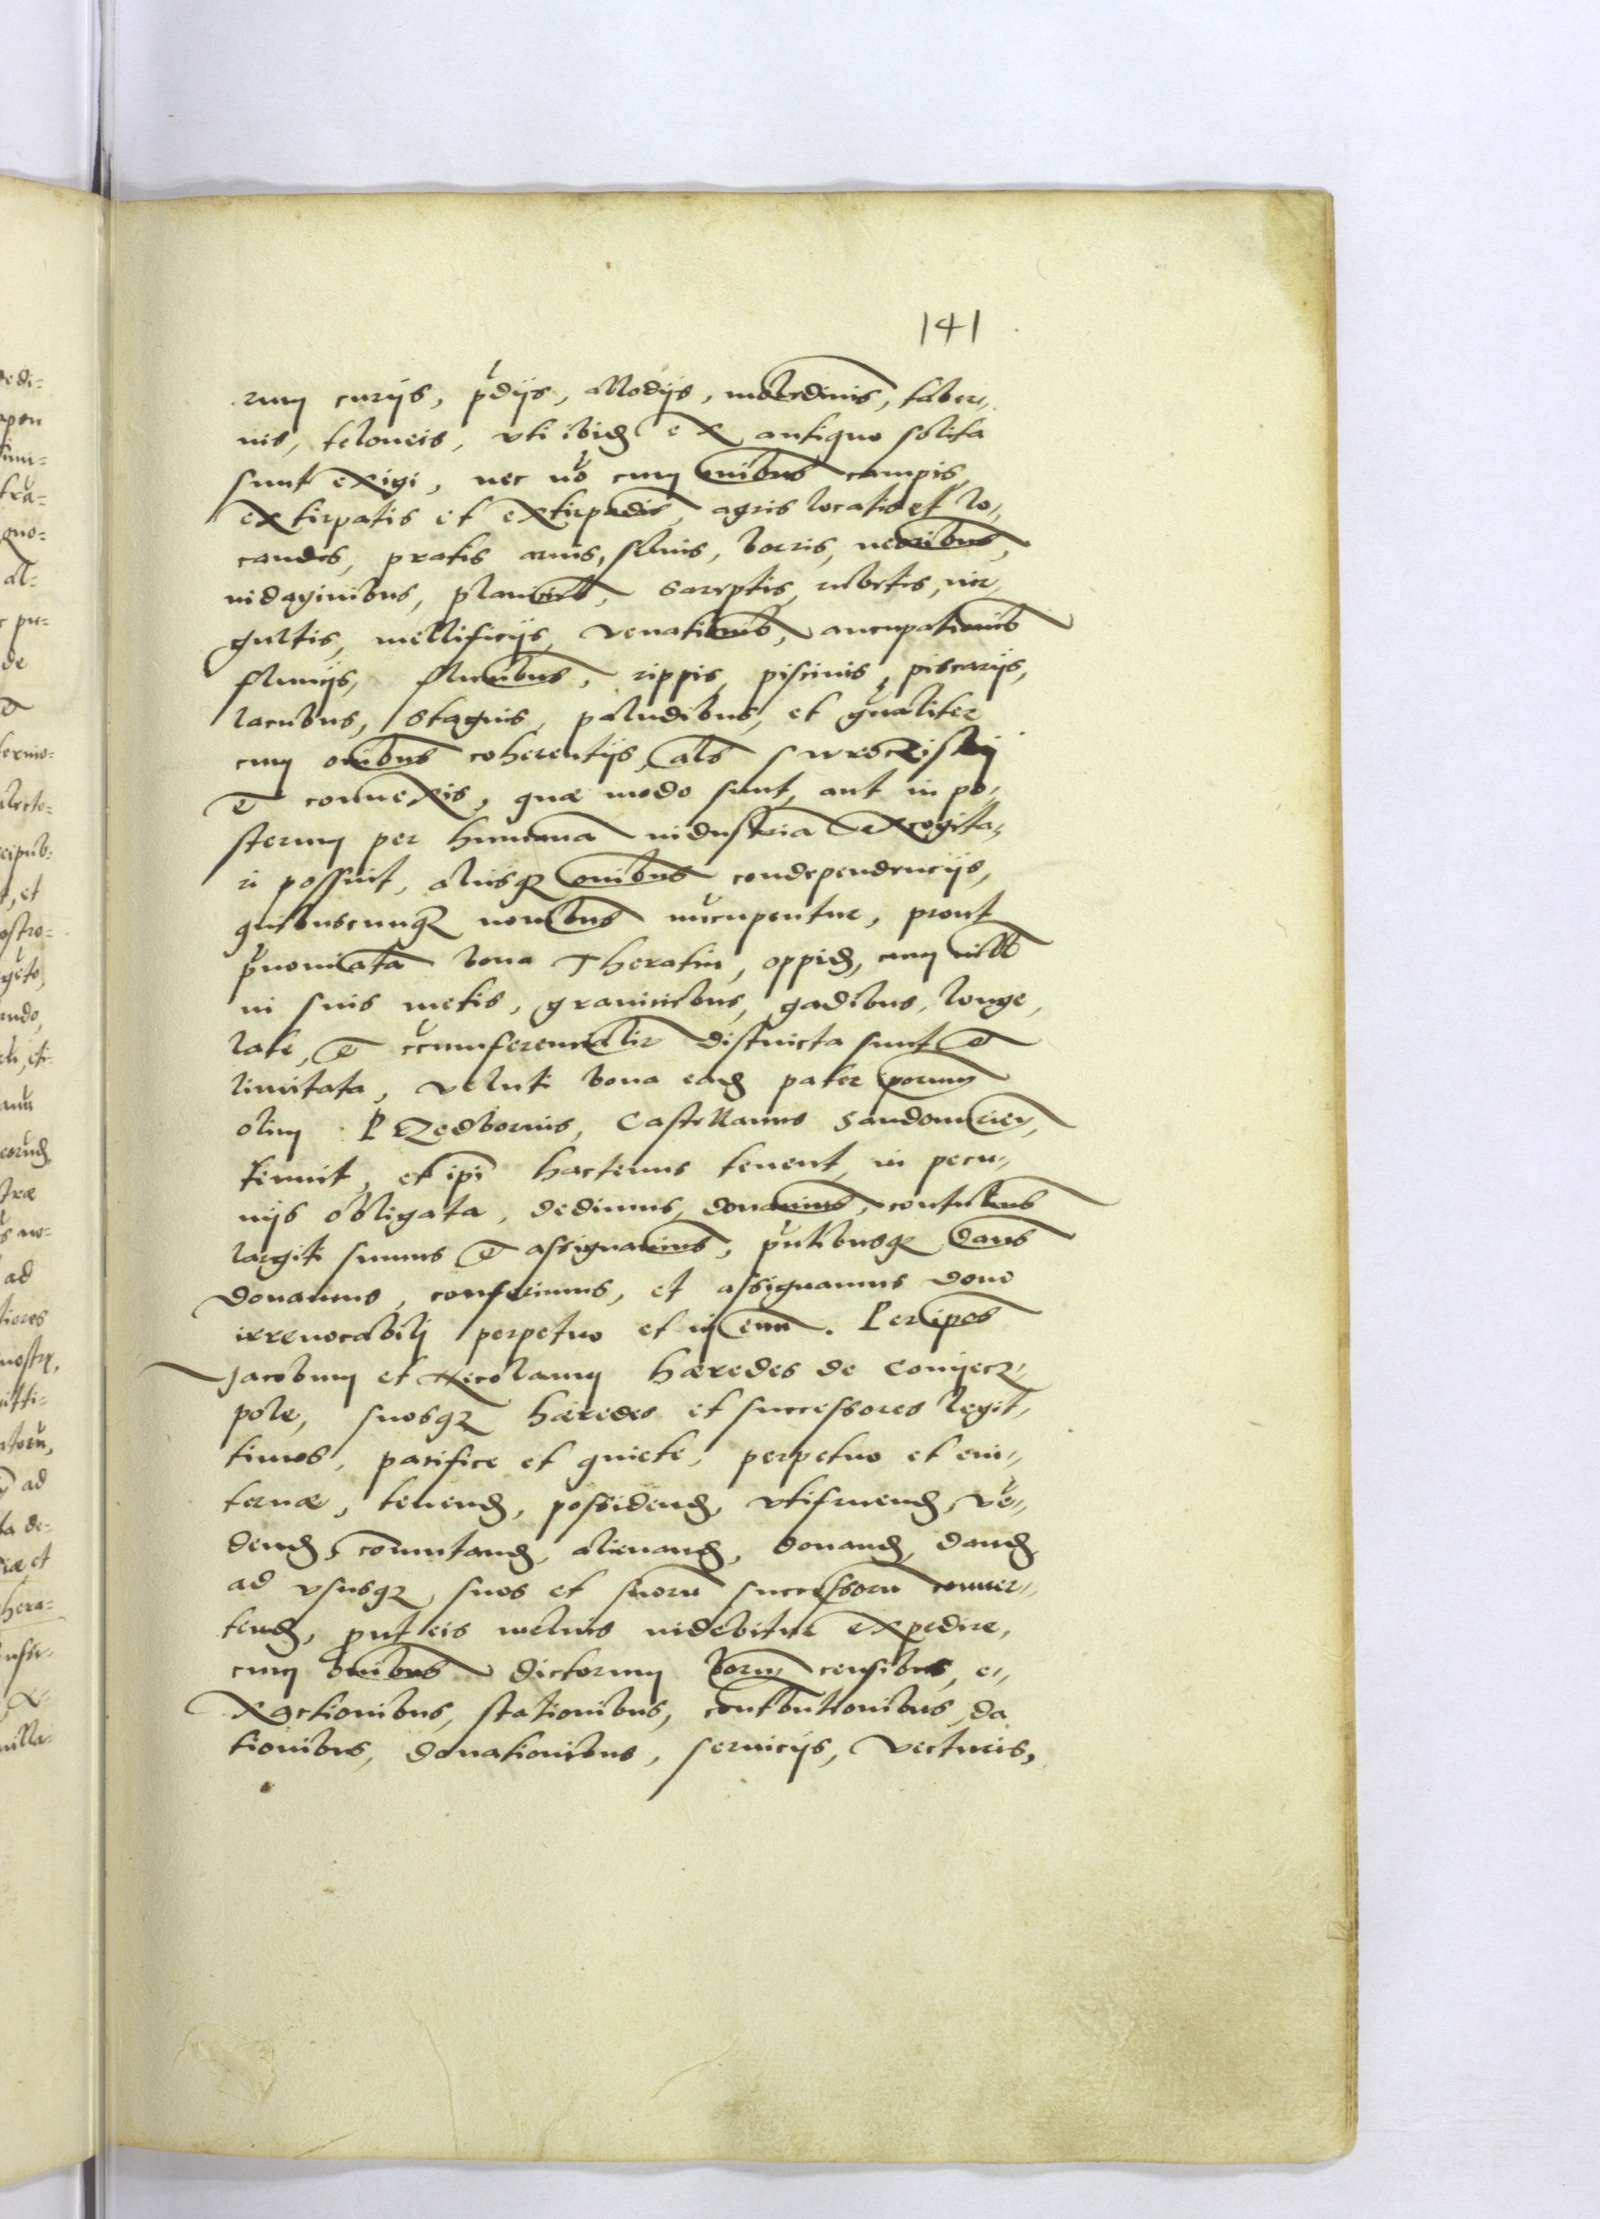 141
rum curijs, pͬdijs, allodijs, molendinis, taber-
nis, teloneis, vti ibid ex antiquo solita
sunt exigi, nec nō cum omibus campis,
extirpatis et extirpadis, agris locatis et lo-
candis, pratis aruis, siluis, borris, nemoribus,
indaginibus, planicieb, rubetis, vir
gultis, mellificijs, venationib, aucupationib
fluuijs, fluctibus, rippis, piscinis, piscarijs,
lacubus, stagnis, paludibus, et gnāliter
cum oibus coherentijs, als
et connexis, quæ modo sunt, aut in po-
sterum per humana industria excogita-
ri possint, alijsq omibus condependencijs,
quibuscunq nomibus nūcupentur, prout
pͬnominata bona Theratin, oppid, cum vill
in suis metis, graniciebus, gadibus, longe,
late, et ccumferencialir distincta sunt et
limitata, veluti bona ead pater iporum
olim PRzedborius, Castellanus Sandomirien,
tenuit, et ipi hactenus tenent in pecu-
nijs obligata, dedimus, donauimus, contulimus
largiti sumus et assignauimus, pͬntibusq damus
donamus, conferimus, et assignamus dono
irreuocabilj perpetuo et in euu. Per ipos
Jacobum et Nicolaum hæredes de Conijecz-
pole, suosq hæredes et successores legit-
timos, pacifice et quiete, perpetuo et eui-
ternæ, tenend, possidend, vtifruend, vē-
dend, comutand, alienand, donand, dand
ad vsusq suos et suoru successoru conuer-
tend, put eis melius videbitur expedire,
cum omibus dictorum bonorum censibus, e-
xactionibus, stationibus, contbutionibus, da
tionibus, donationibus, seruicijs, vecturis,